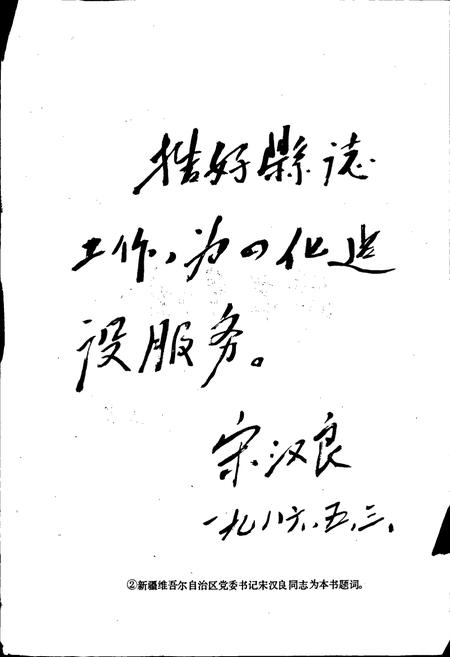 搞好縣誌
工作，为四化建
设服务。
宋汉良
一九八六、五、三、
②新疆维吾尔自治区党委书记宋汉良同志为本书题词。